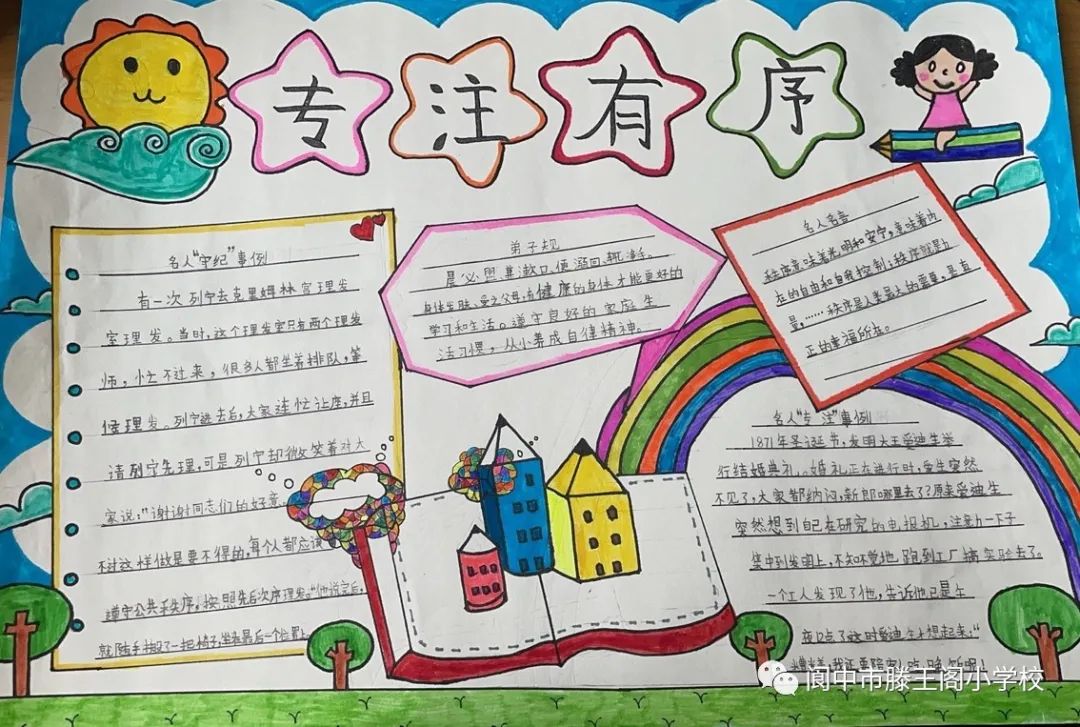 专注有序
名人“守纪”事例
有一次列宁去克里姆林宫理发
室理发。当时,这个理发室只有两个理发
师,忙不过来,很多人都坐着排队,等
候理发。列宁进去后,大家连忙让座,并且
请列宁先理,可是列宁却微笑着对大
家说:“谢谢同志们的好意
不过这样做是要不得的,每个人都应该
遵守公共秩序,按照先后次序理发。”他说完后,
就随手搬了一把椅子,坐在最后一个位置上
弟子规
晨必盥兼漱口,便溺回,辄净手。
身体发肤,受之父母,有健康的身体才能更好的
学习和生活。遵守良好的家庭生
活习惯,从小养成自律精神。
名人名言
秩序意味着光明和安宁,意味着内
在的自由和自我控制;秩序就是力
量,……秩序是人类最大的需要,是真
正的幸福所在。
名人“专注”事例
1871年圣诞节,发明大王爱迪生举
行结婚典礼。婚礼正在进行时,爱迪生突然
不见了,大家都纳闷,新郎哪里去了?原来爱迪生
突然想到自己在研究的电报机,注意力一下子
集中到发明上,不知不觉地跑到工厂搞实验去了。
一个工人发现了他,告诉他已是午
夜12点了这时爱迪生才想起来:“
糟糕,我还要陪客人吃晚饭呢!
阆中市滕王阁小学校